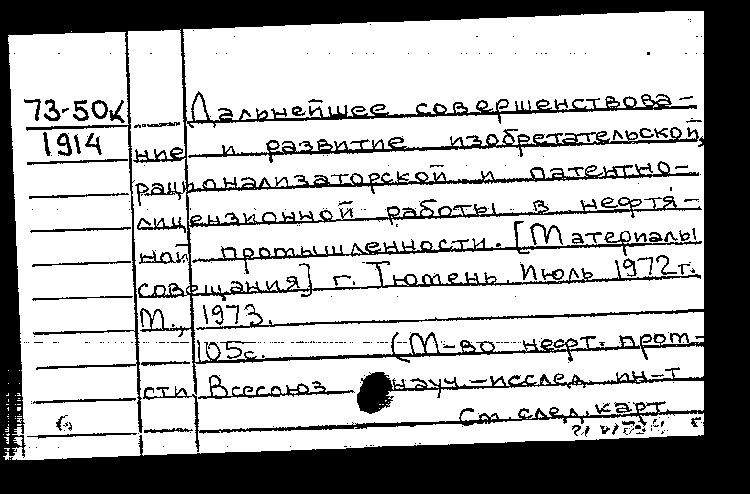 73-50к Дальнейшее совершенствова-
1914 ние и развитие изобретательской,
рационализаторской и патентно-
лицензионной работы в нефтя-
ной промышленности. [Материалы
совещания] г. Тюмень. Июль 1972г.
М., 1973.
105с. (М-во нефт. пром-
сти Всесоюз науч.-исслед. ин-т
См. след. карт.